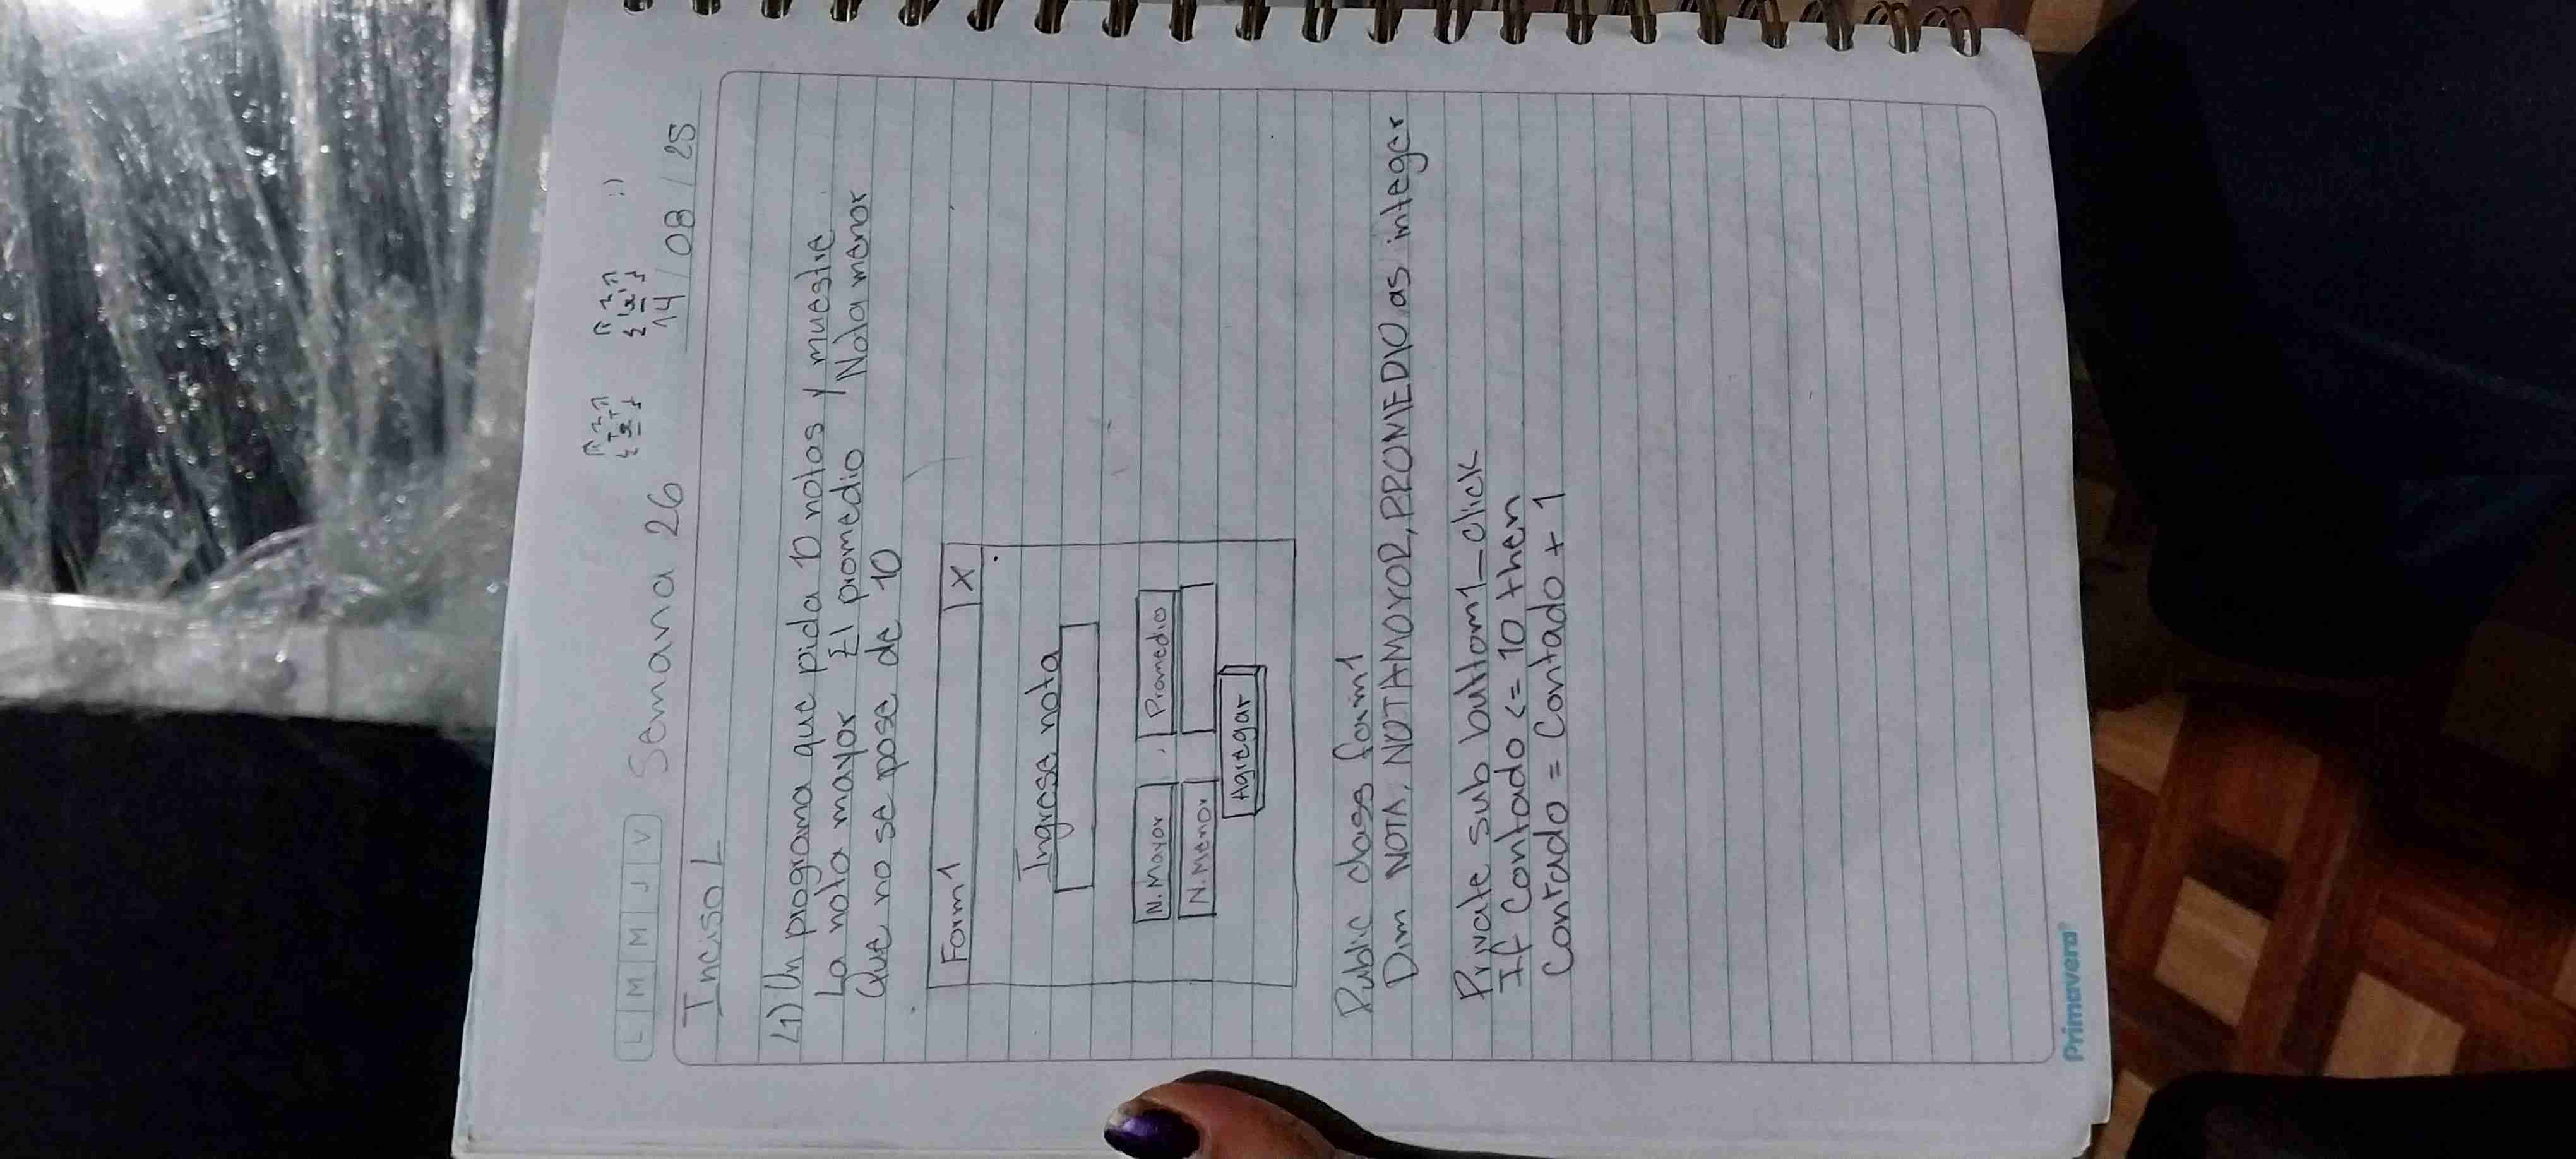 L M M J V
Semana 26
14/08/25
:)
Inciso L
L1) Un programa que pida 10 notas y muestre
La nota mayor El promedio Nota menor
Que no se pase de 10
Form1 X
Ingrese nota
N. Mayor Promedio
N. Menor
Agregar
Public class form1
Dim NOTA, NOTAMAYOR, PROMEDIO as integer
Private sub buttom1_click
If Contado <= 10 then
Contado = Contado + 1
Primavera